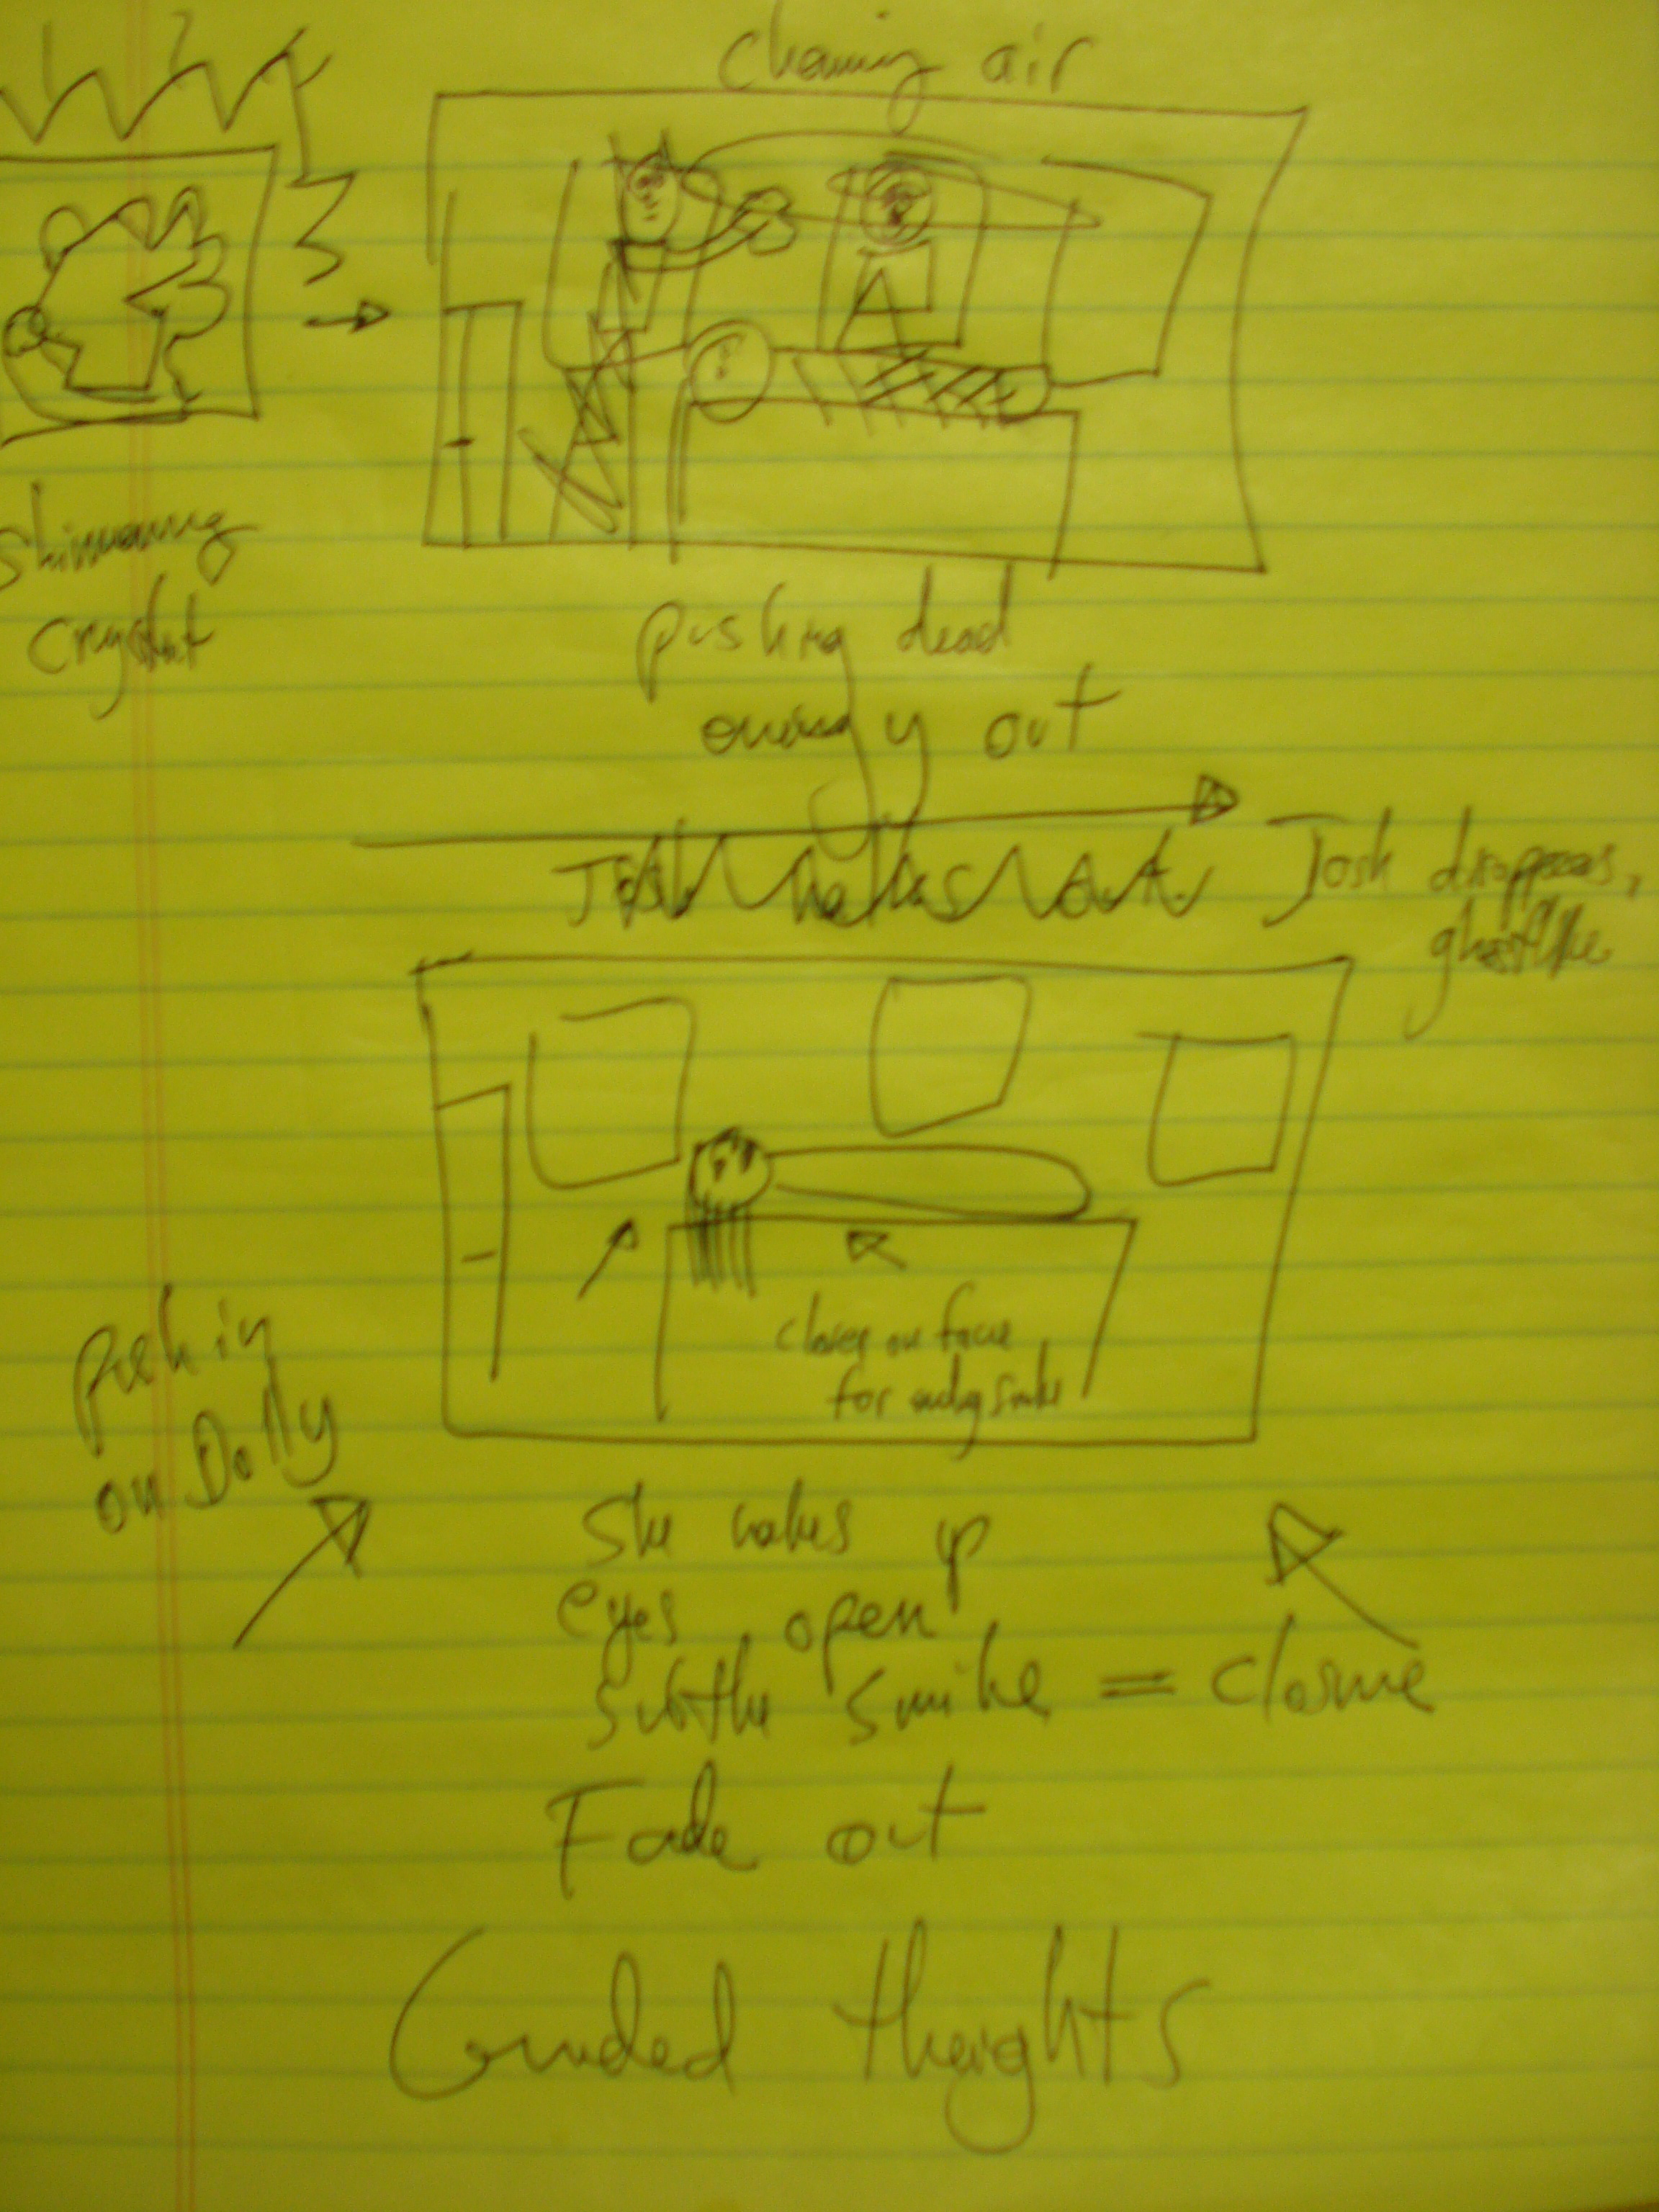 air
Shimmering
crystal
pushing dead
energy out
Josh walks out.
Josh disappears,
ghostlike
Push in
on Dolly
closey on face
for smile
She wakes up
eyes open
subtle smile = closure
Fade out
Guided thoughts